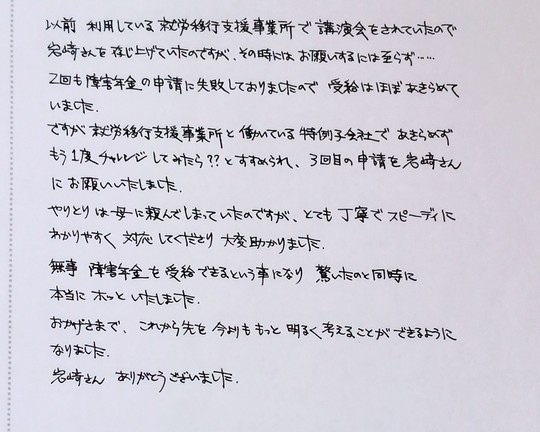 以前 利用している就労移行支援事業所で講演会をされていたので
岩崎さんを存じ上げていたのですが、その時にはお願いするには至らず……
2回も障害年金の申請に失敗しておりましたので 受給はほぼあきらめて
いました.
ですが 就労移行支援事業所と働いている特例子会社で あきらめず
もう1度チャレンジしてみたら??とすすめられ、3回目の申請を岩崎さん
にお願いいたしました.
やりとりは母に頼んでしまっていたのですが、とても丁寧でスピーディに
わかりやすく 対応してくださり 大変助かりました.
無事 障害年金を受給できるという事になり 驚いたのと同時に
本当にホッといたしました.
おかげさまで、これから先を今よりももっと明るく考えることができるように
なりました.
岩崎さん ありがとうございました.